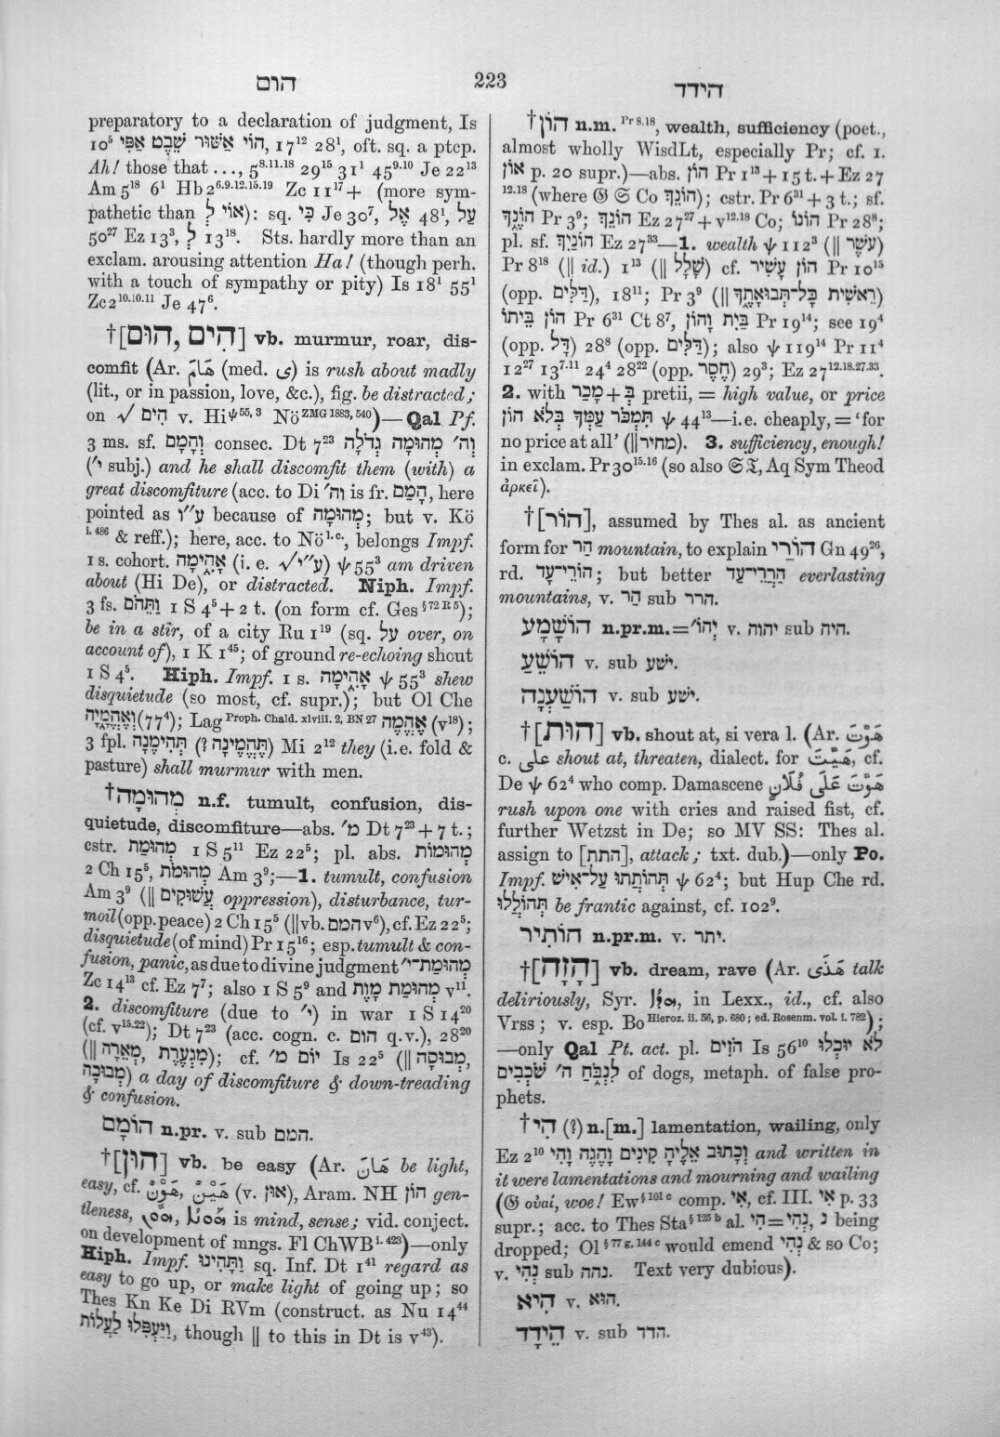 הום
223
הידד
preparatory to a declaration of judgment, Is
10⁵ הוֹי אַשּׁוּר שֵׁבֶט אַפִּי, 17¹² 28¹, oft. sq. a ptcp.
Ah! those that ..., 5⁸·¹¹·¹⁸ 29¹⁵ 31¹ 45⁹·¹⁰ Je 22¹³
Am 5¹⁸ 6¹ Hb 2⁶·⁹·¹²·¹⁵·¹⁹ Zc 11¹⁷+ (more sym-
pathetic than אוֹי לְ): sq. כִּי Je 30⁷, אֶל 48¹, עַל
50²⁷ Ez 13³, לְ 13¹⁸. Sts. hardly more than an
exclam. arousing attention Ha! (though perh.
with a touch of sympathy or pity) Is 18¹ 55¹
Zc 2¹⁰·¹⁰·¹¹ Je 47⁶.
†[הוּם, הִים] vb. murmur, roar, dis-
comfit (Ar. هَامَ (med. ى) is rush about madly
(lit., or in passion, love, &c.), fig. be distracted;
on √ הים v. Hi ψ 55, 3 Nö ZMG 1883, 540)—Qal Pf.
3 ms. sf. וְהָמָם consec. Dt 7²³ וה׳ מְהוּמָה גְדֹלָה
(י׳ subj.) and he shall discomfit them (with) a
great discomfiture (acc. to Di וה׳ is fr. הָמַם, here
pointed as ע״ו because of מְהוּמָה; but v. Kö
i. 486 & reff.); here, acc. to Nö l.c., belongs Impf.
1 s. cohort. אָהִימָה (i. e. √ע״י) ψ 55³ am driven
about (Hi De), or distracted. Niph. Impf.
3 fs. וַתֵּהֹם 1 S 4⁵+2 t. (on form cf. Ges § 72 R 5);
be in a stir, of a city Ru 1¹⁹ (sq. עַל over, on
account of), 1 K 1⁴⁵; of ground re-echoing shout
1 S 4⁵. Hiph. Impf. 1 s. אָהִימָה ψ 55³ shew
disquietude (so most, cf. supr.); but Ol Che
וְאֶהֱמָיָה (77⁴); Lag Proph. Chald. xlviii. 2, BN 27 אֶהֱמֶה (v¹⁸);
3 fpl. תְּהִימֶנָה (תֶּהֱמֶינָה ?) Mi 2¹² they (i.e. fold &
pasture) shall murmur with men.
†מְהוּמָה n.f. tumult, confusion, dis-
quietude, discomfiture—abs. מ׳ Dt 7²³+7 t.;
cstr. מְהוּמַת 1 S 5¹¹ Ez 22⁵; pl. abs. מְהוּמוֹת
2 Ch 15⁵, מְהוּמֹת Am 3⁹;—1. tumult, confusion
Am 3⁹ (|| עֲשׁוּקִים oppression), disturbance, tur-
moil (opp. peace) 2 Ch 15⁵ (||vb. המם v⁶), cf. Ez 22⁵;
disquietude (of mind) Pr 15¹⁶; esp. tumult & con-
fusion, panic, as due to divine judgment מְהוּמַת־י׳
Zc 14¹³ cf. Ez 7⁷; also 1 S 5⁹ and מְהוּמַת מָוֶת v¹¹.
2. discomfiture (due to י׳) in war 1 S 14²⁰
(cf. v¹⁵·²²); Dt 7²³ (acc. cogn. c. הום q.v.), 28²⁰
(|| מִגְעֶרֶת, מְאֵרָה); cf. יוֹם מ׳ Is 22⁵ (|| מְבוּסָה,
מְבוּכָה) a day of discomfiture & down-treading
& confusion.
הוֹמָם n.pr. v. sub המם.
†[הוּן] vb. be easy (Ar. هَانَ be light,
easy, cf. هَيِّنٌ, هَوْنٌ (v. און), Aram. NH הוֹן gen-
tleness, is mind, sense; vid. conject.
on development of mngs. Fl ChWB i. 423)—only
Hiph. Impf. וַתָּהִינוּ sq. Inf. Dt 1⁴¹ regard as
easy to go up, or make light of going up; so
Thes Kn Ke Di RVm (construct. as Nu 14⁴⁴
וַיַּעְפִּלוּ לַעֲלוֹת, though || to this in Dt is v⁴³).
†הוֹן n.m. Pr 8.18, wealth, sufficiency (poet.,
almost wholly WisdLt, especially Pr; cf. 1.
אוֹן p. 20 supr.)—abs. הוֹן Pr 1¹³+15 t.+Ez 27
12.18 (where 𝔊 𝔖 Co הוֹנֵךְ); cstr. Pr 6³¹+3 t.; sf.
הוֹנֶךָ Pr 3⁹; הוֹנֵךְ Ez 27²⁷+v¹²·¹⁸ Co; הוֹנוֹ Pr 28⁸;
pl. sf. הוֹנַיִךְ Ez 27³³—1. wealth ψ 112³ (|| עֹשֶׁר)
Pr 8¹⁸ (|| id.) 1¹³ (|| שָׁלָל) cf. הוֹן עָשִׁיר Pr 10¹⁵
(opp. דַּלִּים), 18¹¹; Pr 3⁹ (|| רֵאשִׁית כָּל־תְּבוּאָתֶךָ)
הוֹן בֵּיתוֹ Pr 6³¹ Ct 8⁷, בַּיִת וָהוֹן Pr 19¹⁴; see 19⁴
(opp. דָּל) 28⁸ (opp. דַּלִּים); also ψ 119¹⁴ Pr 11⁴
12²⁷ 13⁷·¹¹ 24⁴ 28²² (opp. חֶסֶר) 29³; Ez 27¹²·¹⁸·²⁷·³³.
2. with מָכַר + בְּ pretii, = high value, or price
תִּמְכֹּר עַמְּךָ בְּלֹא הוֹן ψ 44¹³—i.e. cheaply, = 'for
no price at all' (||מחיר). 3. sufficiency, enough!
in exclam. Pr 30¹⁵·¹⁶ (so also 𝔖 𝔗, Aq Sym Theod
ἀρκεῖ).
†[הוֹר], assumed by Thes al. as ancient
form for הַר mountain, to explain הוֹרַי Gn 49²⁶,
rd. הוֹרֵי־עַד; but better הַרְרֵי־עַד everlasting
mountains, v. הַר sub הרר.
הוֹשָׁמָע n.pr.m.=יְהוֹ׳ v. יהוה sub היה.
הוֹשֵׁעַ v. sub ישע.
הוֹשַׁעֲנָה v. sub ישע.
†[הוּת] vb. shout at, si vera l. (Ar. هَوَّتَ
c. على shout at, threaten, dialect. for هَيَّتَ, cf.
De ψ 62⁴ who comp. Damascene هَوَّتَ عَلَى فُلَانٍ
rush upon one with cries and raised fist, cf.
further Wetzst in De; so MV SS: Thes al.
assign to [התת], attack; txt. dub.)—only Po.
Impf. תְּהוֹתְתוּ עַל־אִישׁ ψ 62⁴; but Hup Che rd.
תְּהוֹלְלוּ be frantic against, cf. 102⁹.
הוֹתִיר n.pr.m. v. יתר.
†[הָזָה] vb. dream, rave (Ar. هَذَى talk
deliriously, Syr. in Lexx., id., cf. also
Vrss; v. esp. Bo Hieroz. ii. 56, p. 680; ed. Rosenm. vol. i. 782);
—only Qal Pt. act. pl. הֹזִים Is 56¹⁰ לֹא יוּכְלוּ
לִנְבֹּחַ ה׳ שֹׁכְבִים of dogs, metaph. of false pro-
phets.
†הִי (?) n.[m.] lamentation, wailing, only
Ez 2¹⁰ וְכָתוּב אֵלֶיהָ קִינִים וָהֶגֶה וָהִי and written in
it were lamentations and mourning and wailing
(𝔊 οὐαί, woe! Ew § 101 c comp. אִי, cf. III. אִי p. 33
supr.; acc. to Thes Sta § 125 b al. הִי=נְהִי, נ being
dropped; Ol § 77 g, 144 c would emend נְהִי & so Co;
v. נְהִי sub נהה. Text very dubious).
הִיא v. הוּא.
הֵידָד v. sub הדד.